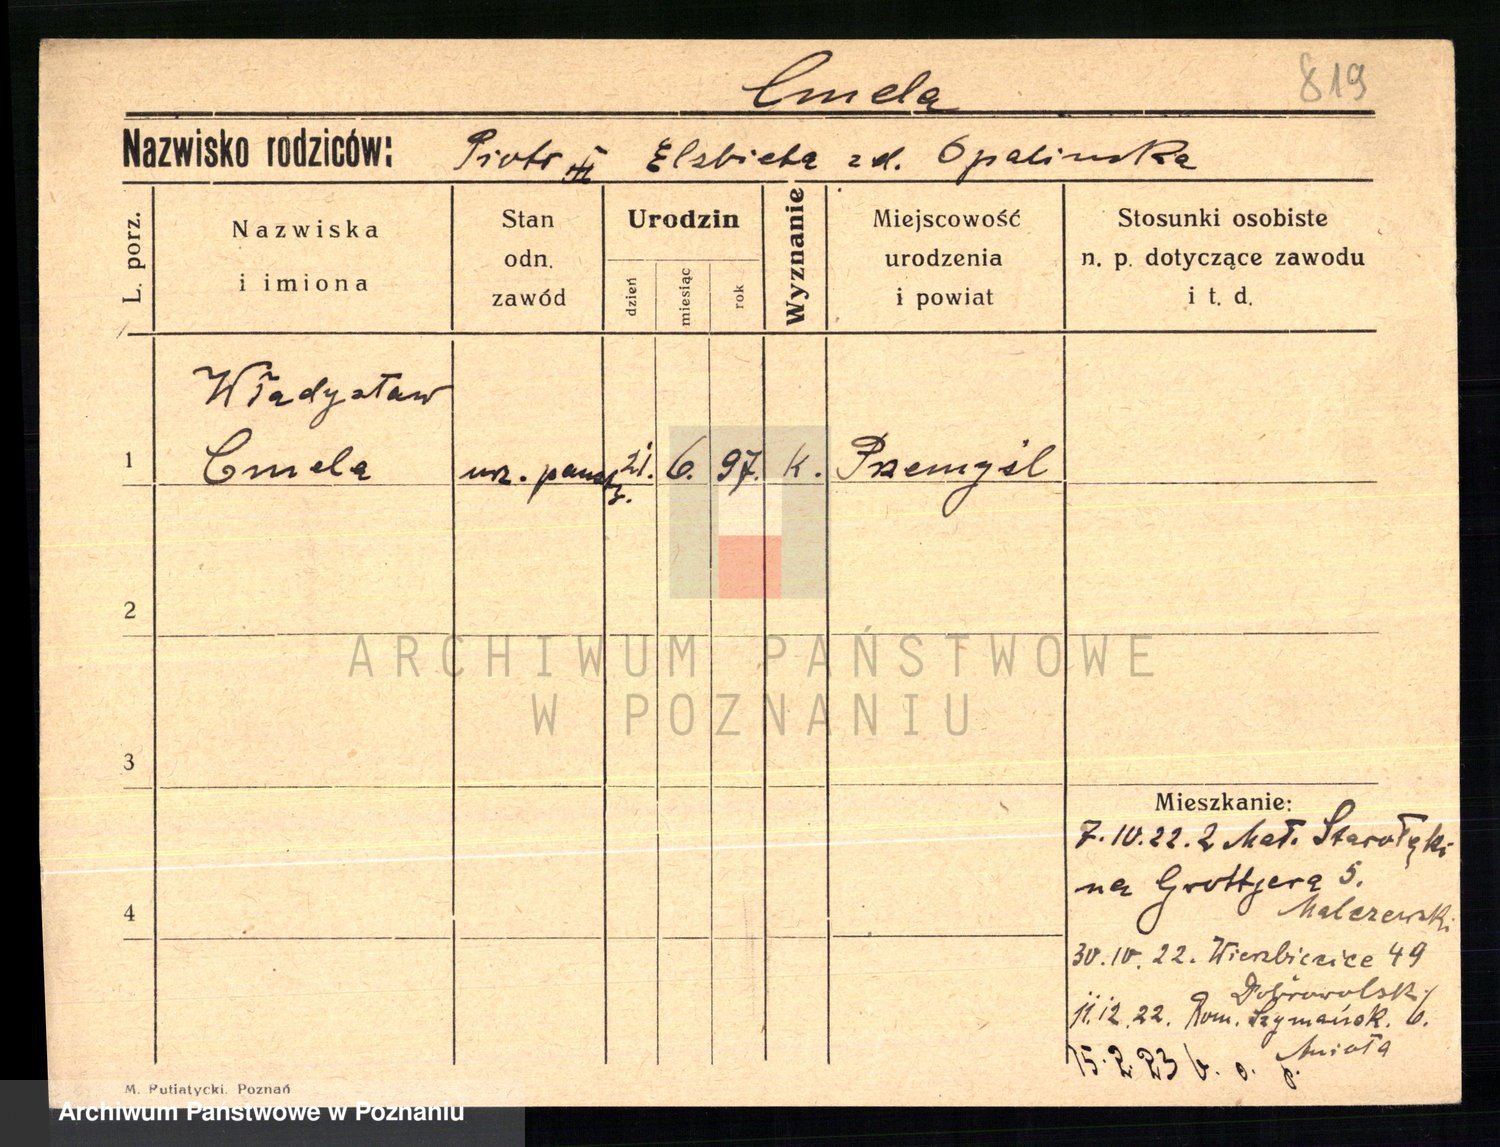 Cmela
819
Nazwisko rodziców: Piotr Elzbieta zd. Opalinska
L. porz.
Nazwiska
i imiona
Stan
odn.
zawód
Urodzin
dzień
miesiąc
rok
Wyznanie
Miejscowość
urodzenia
i powiat
Stosunki osobiste
n. p. dotyczące zawodu
i t. d.
Władysław
1 Cmela urz. państ. 21. 6. 97. k. Przemyśl
2
ARCHIWUM PAŃSTWOWE
W POZNANIU
3
Mieszkanie:
7.10.22. z Mał. Starołęki
na Grottgera 5.
Malczewski
30.10.22. Wierzbiecice 49
Dobrowolski
11.12.22. Rom. Szymańsk. 6.
Anioła
15.2.23 b. o. p.
4
M. Putiatycki. Poznań
Archiwum Państwowe w Poznaniu